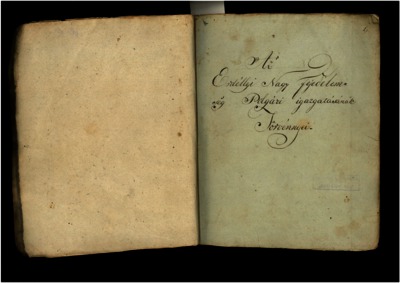 Az
Erdéllyi Nagy Fejedelem-
ség Polgári igazgatásának
Törvénnyei.